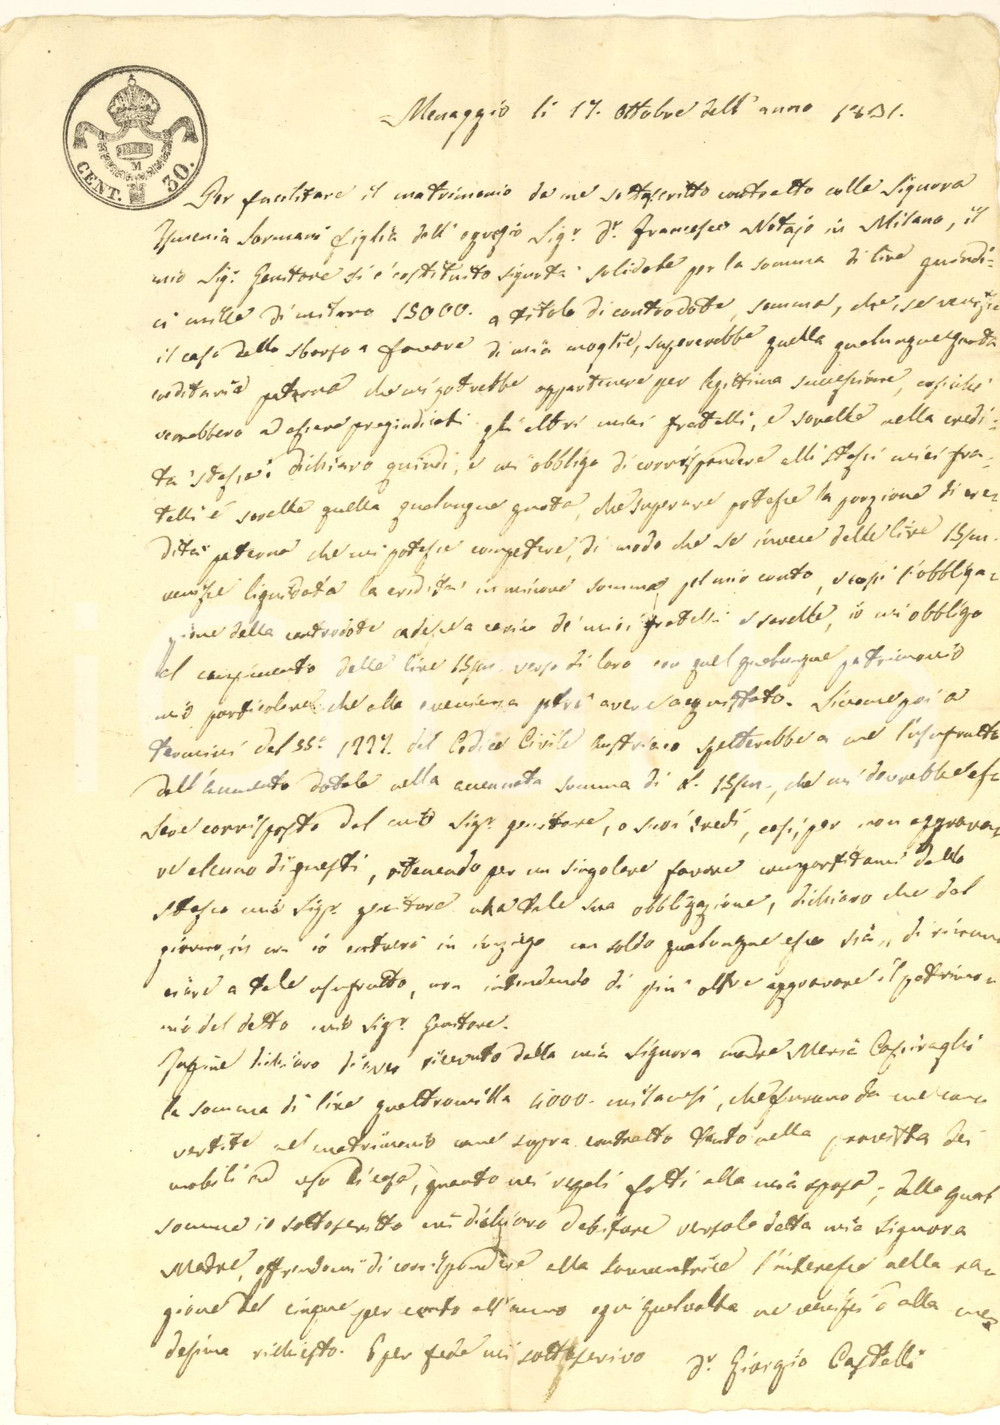 CENT. 30.
M
Menaggio li 17. Ottobre dell'anno
Per facilitare il matrimonio da me sottoscritto contratto colla Signora
Ismenia Sormani figlia dell'egregio Sigr. Dr. Francesco Notajo in Milano, il
mio Sigr. Genitore si è costituito sigurtà solidale per la somma di lire quindi=
ci mille di milano 15000. a titolo di controdote, somma, che, se venisse
il caso dello sborso a favore di mia moglie, supererebbe quella qualunque quota
ereditaria paterna che mi potrebbe appartenere per legittima successione, cosichè
verrebbero ad essere pregiudicati gli altri miei fratelli, e sorelle nella eredi=
tà stessa: dichiaro quindi, e mi obbligo di corrispondere alli stessi miei fra=
telli e sorelle quella qualunque quota, che superare potesse la porzione di ere=
dità paterna che mi potesse competere, di modo che se invece delle lire 15/m.
venisse liquidata la eredità in minore somma pel mio conto, e così l'obbliga=
zione della controdote cadesse a carico de' miei fratelli e sorelle, io mi obbligo
al compimento delle lire 15/m. verso di loro con quel qualunque patrimonio
mio particolare che alla evenienza potrò avere acquistato. Siccome poi a
termini del §§o. 1227. del Codice Civile Austriaco spetterebbe a me l'usufrutto
dell'aumento dotale nella accennata somma di L. 15/m., che mi dovrebbe es=
sere corrisposto dal mio Sigr. genitore, o suoi eredi, così, per non aggrava=
re alcuno di questi, ottenendo per un singolare favore compartitami dallo
stesso mio Sigr. genitore una tale sua obbligazione, dichiaro che dal
giorno, in cui io entrerò in impiego con soldo qualunque esso sia, di rinun=
ciare a tale usufrutto, non intendendo di più oltre aggravare il patrimo=
nio del detto mio Sigr. Genitore.
Infine dichiaro d'aver ricevuto dalla mia Signora madre Maria
la somma di lire quattromilla 4000. milanesi, che furono da me con=
vertite nel matrimonio come sopra contratto tanto nella provvista dei
mobili ad uso di casa, quanto nei regali fatti alla mia sposa; della qual
somma io sottoscritto mi dichiaro debitore verso la detta mia Signora
Madre, offrendomi di corrispondere alla sovventrice l'interesse nella ra=
gione del cinque per cento all'anno ogni qualvolta ne venissi dalla me=
desima richiesto. E per fede mi sottoscrivo Dr. Giorgio Castelli